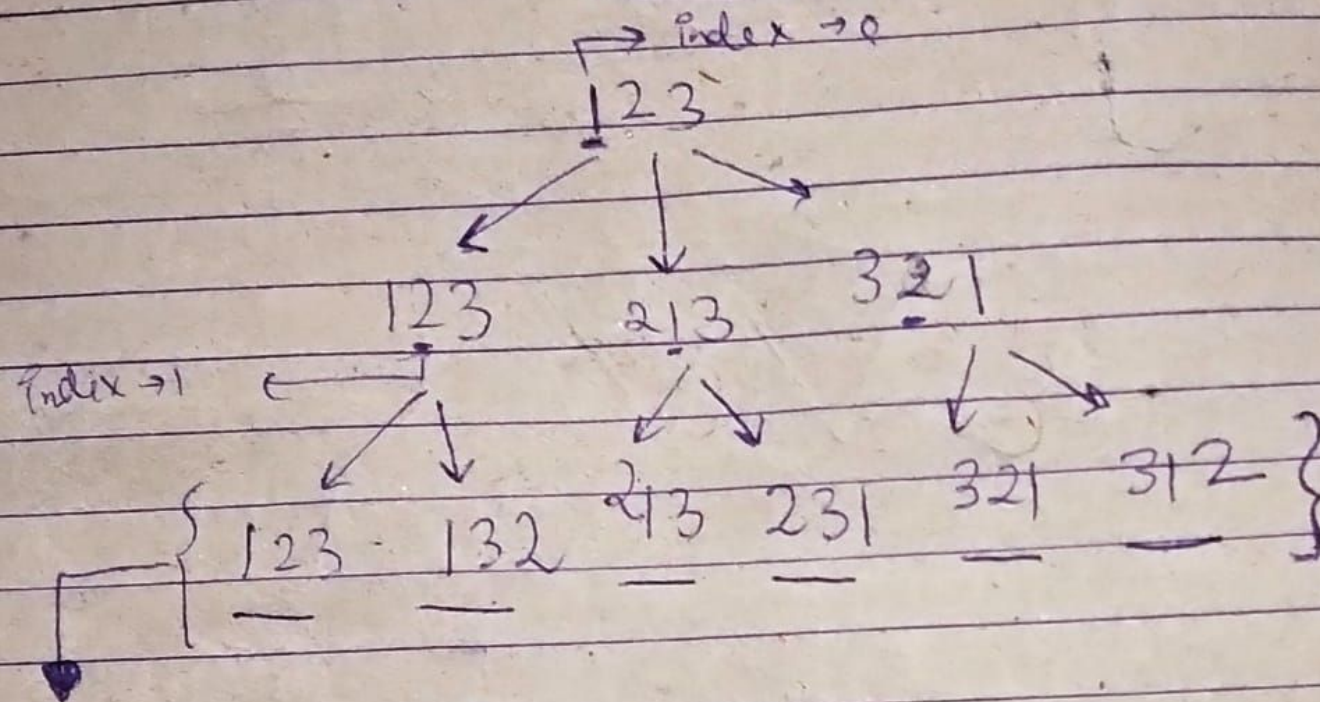 index → 0
123
123 213 321
index → 1
123 132 213 231 321 312